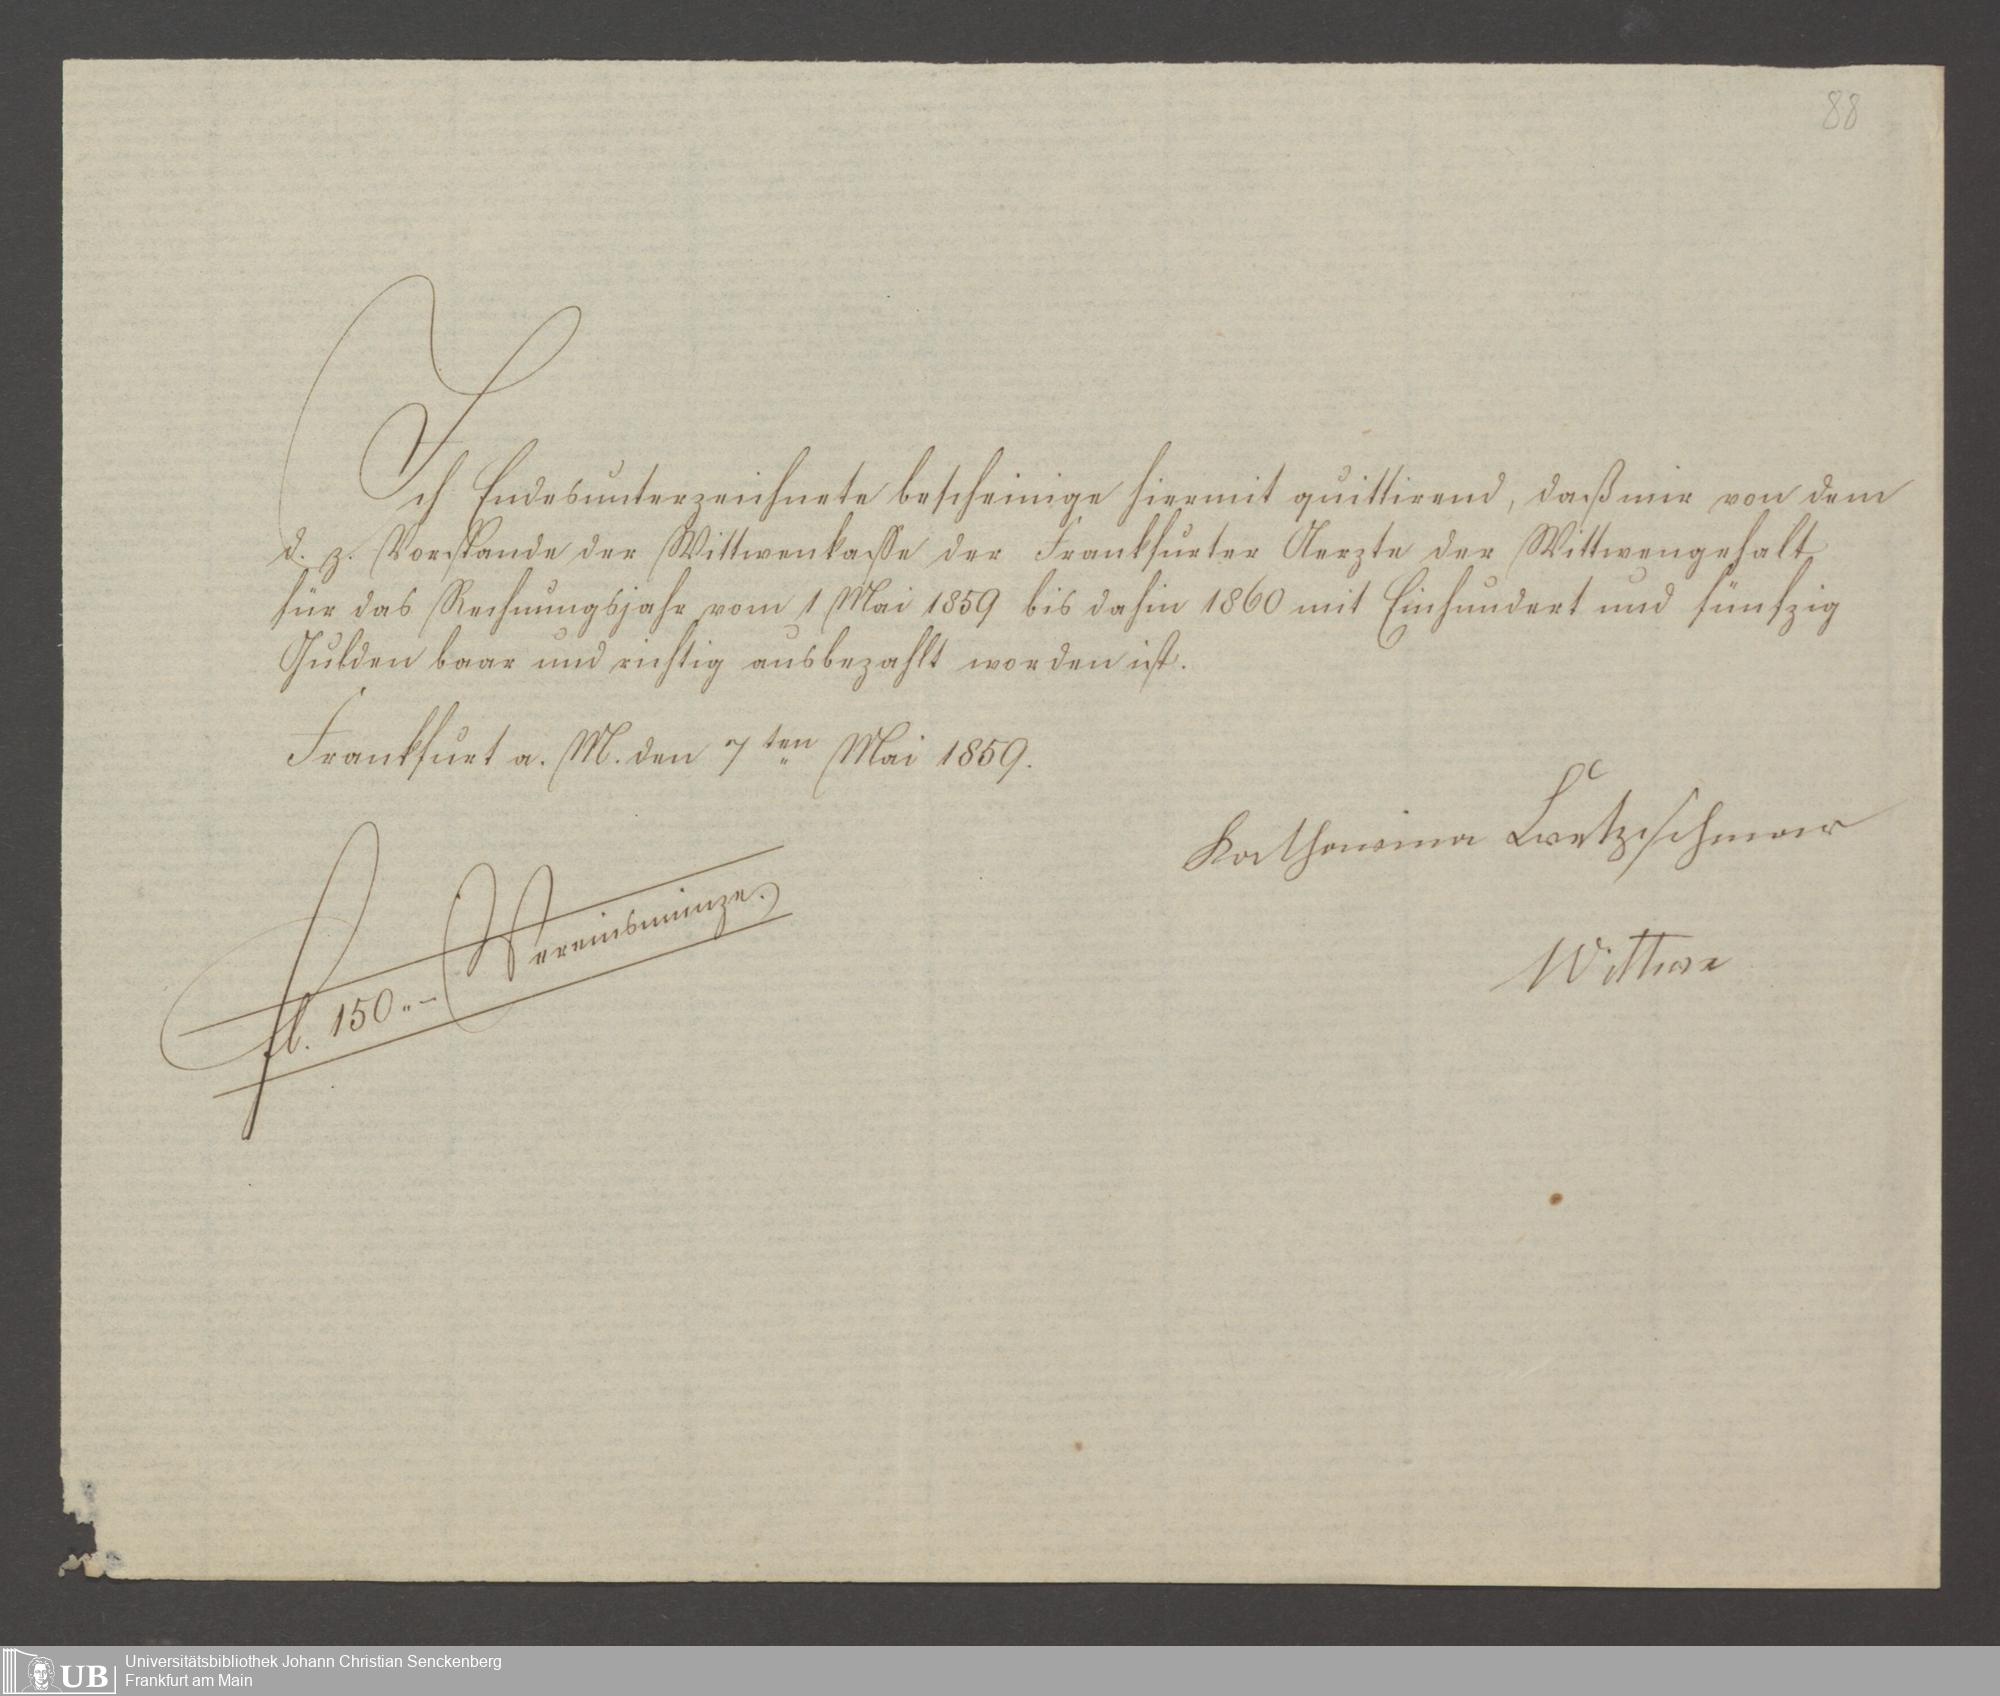 88
Ich Endesunterzeichnete bescheinige hiermit quittirend, daß mir von dem
d. z. Vorstande der Wittwenkasse der Frankfurter Aerzte der Wittwengehalt
für das Rechnungsjahr vom 1 Mai 1859 bis dahin 1860 mit Einhundert und fünfzig
Gulden baar und richtig ausbezahlt worden ist.
Frankfurt a. M. den 7ten Mai 1859.
Katharina Kretzschmar
Wittwe
fl. 150.- Vereinsmünze.
UB
Universitätsbibliothek Johann Christian Senckenberg
Frankfurt am Main